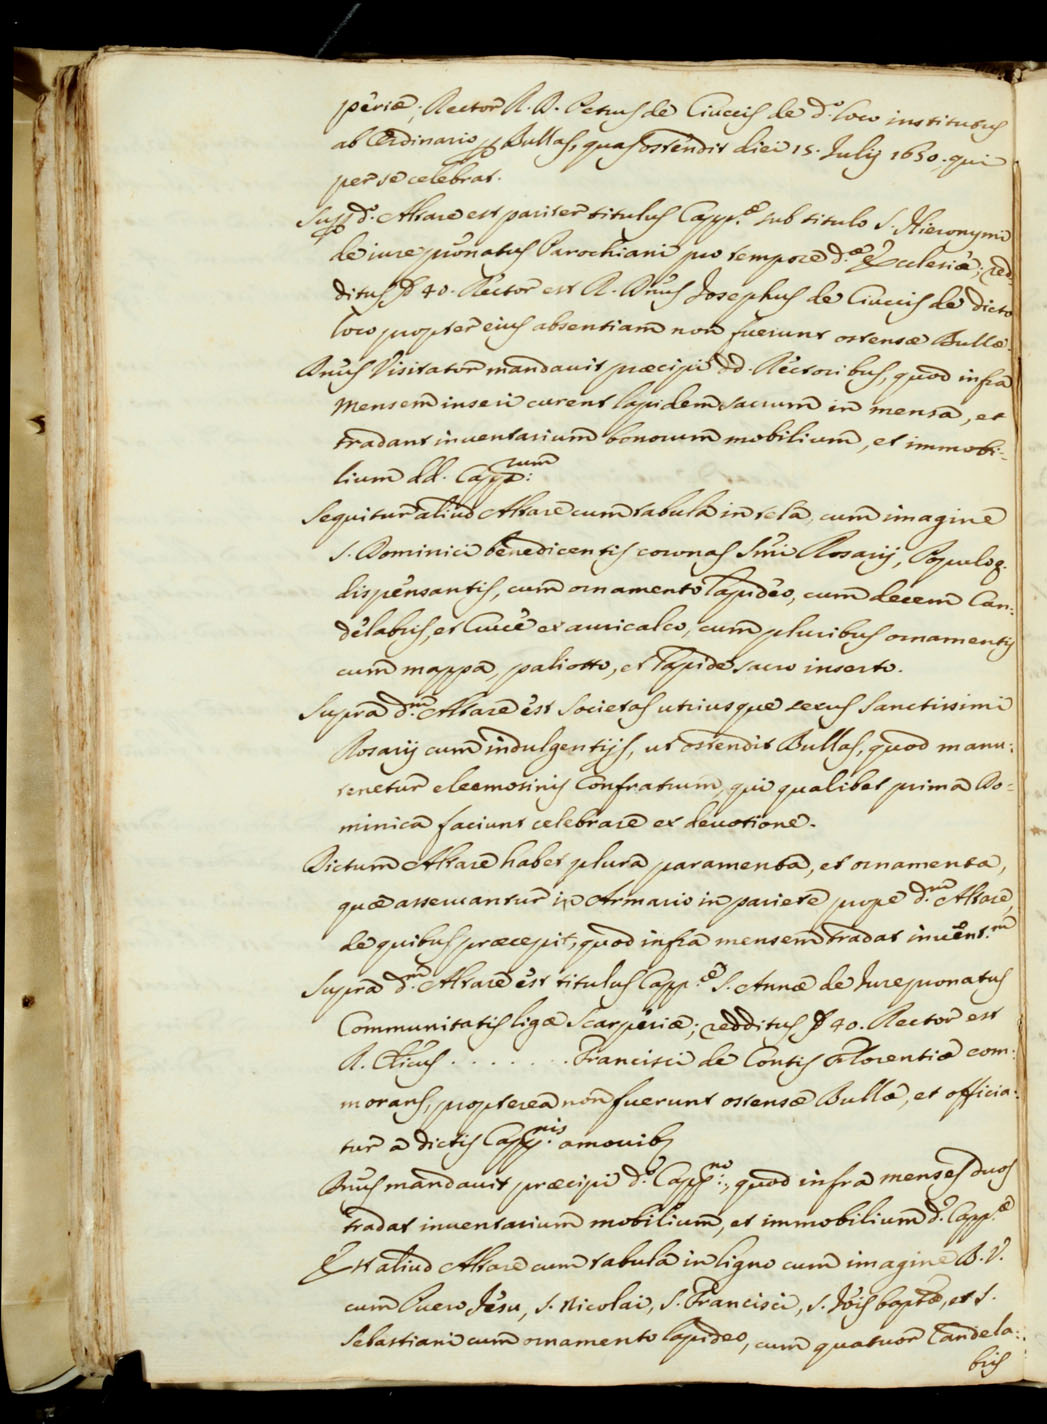 periæ; Rector R. D. Petrus de Ciuccis de d.º loco institutus
ab Ordinario p Bullas, quas ostendit diei 15. Julij 1650. qui
per se celebrat.
Sup d.º Altare est pariter titulus Capp.æ sub titulo S. Hieronymi
de iure pronatus Parochiani pro tempore d.æ Ecclesiæ; red-
ditus 40. Rector est R. Dnus Josephus de Ciuccis de dicto
loco propter eius absentiam non fuerunt ostensæ Bullæ.
Dnus Visitator mandavit præcipi dd. Rectoribus, quod infra
mensem inseri curent lapidem sacrum in mensa, et
tradant inventarium bonorum mobilium, et immobi-
lium dd. Capp.rum
Sequitur aliud Altare cum tabula in tela, cum imagine
S. Dominici benedicentis coronas Smi Rosarij, Populoq.
dispensantis, cum ornamento lapideo, cum decem Can-
delabris, et Cruce ex auricalco, cum pluribus ornamentis
cum mappa, paliotto, et lapide sacro inserto.
Supra d.m Altare est Societas utriusque sexus Sanctissimi
Rosarij cum indulgentijs, ut ostendit Bullas, quod manu-
tenetur eleemosinis Confratrum, qui qualibet prima Do-
minica faciunt celebrare ex devotione.
Dictum Altare habet plura paramenta, et ornamenta,
quæ asservantur in Armario in pariete prope d.m Altare,
de quibus præcepit, quod infra mensem tradat invent.m
Supra d.m Altare est titulus Capp.æ S. Annæ de Jurepronatus
Communitatis ligæ Scarperiæ; redditus 40. Rector est
R. Clicus . . . . . . . Francisci de Contis Florentiæ com-
morans, propterea non fuerunt ostensæ Bullæ, et officia-
tur a dictis Capp.nis amovib
Dnus mandavit præcipi d.º Capp.no, quod infra menses duos
tradat inventarium mobilium, et immobilium d.æ Capp.æ
Est aliud Altare cum tabula in ligno cum imagine B. V.
cum Puero Jesu, S. Nicolai, S. Francisci, S. Jois baptæ, et S.
Sebastiani cum ornamento lapideo, cum quatuor Candela-
bris